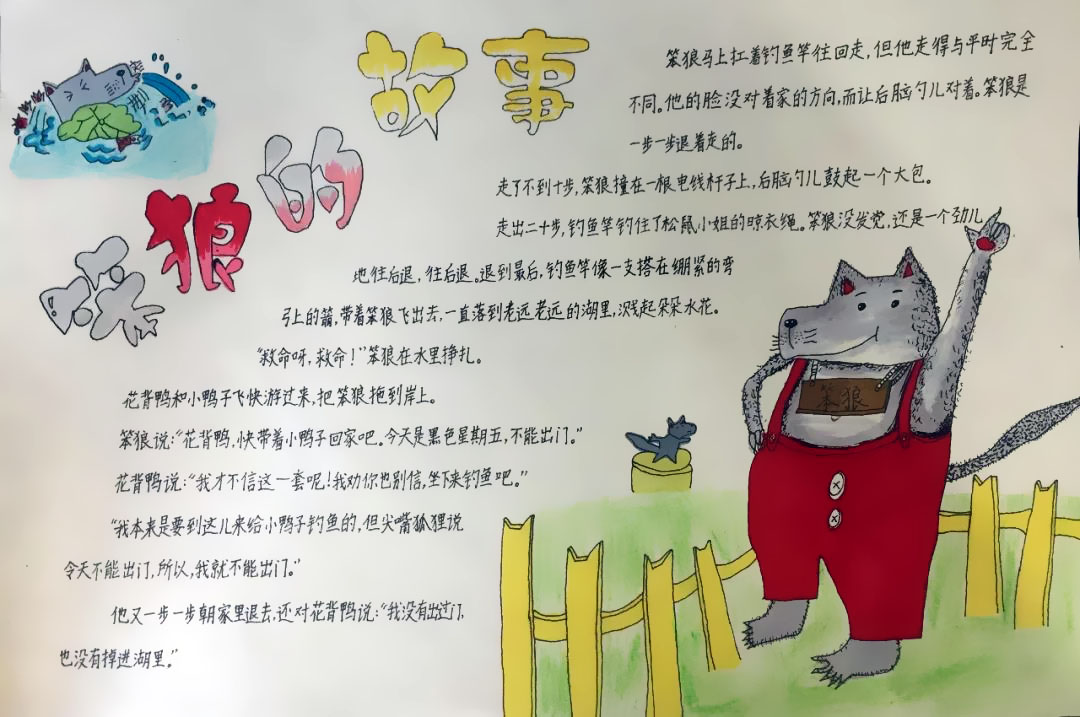 笨狼的故事
笨狼马上扛着钓鱼竿往回走,但他走得与平时完全
不同。他的脸没对着家的方向,而让后脑勺儿对着。笨狼是
一步一步退着走的。
走了不到十步,笨狼撞在一根电线杆子上,后脑勺儿鼓起一个大包。
走出二十步,钓鱼竿钓住了松鼠小姐的晾衣绳。笨狼没发觉,还是一个劲儿
地往后退,往后退。退到最后,钓鱼竿像一支搭在绷紧的弯
弓上的箭,带着笨狼飞出去,一直落到老远老远的湖里,溅起朵朵水花。
“救命呀,救命!”笨狼在水里挣扎。
花背鸭和小鸭子飞快游过来,把笨狼拖到岸上。
笨狼说:“花背鸭,快带着小鸭子回家吧。今天是黑色星期五,不能出门。”
花背鸭说:“我才不信这一套呢!我劝你也别信,坐下来钓鱼吧。”
“我本来是要到这儿来给小鸭子钓鱼的,但尖嘴狐狸说
今天不能出门,所以,我就不能出门。”
他又一步一步朝家里退去,还对花背鸭说:“我没有出过门,
也没有掉进湖里。”
笨狼